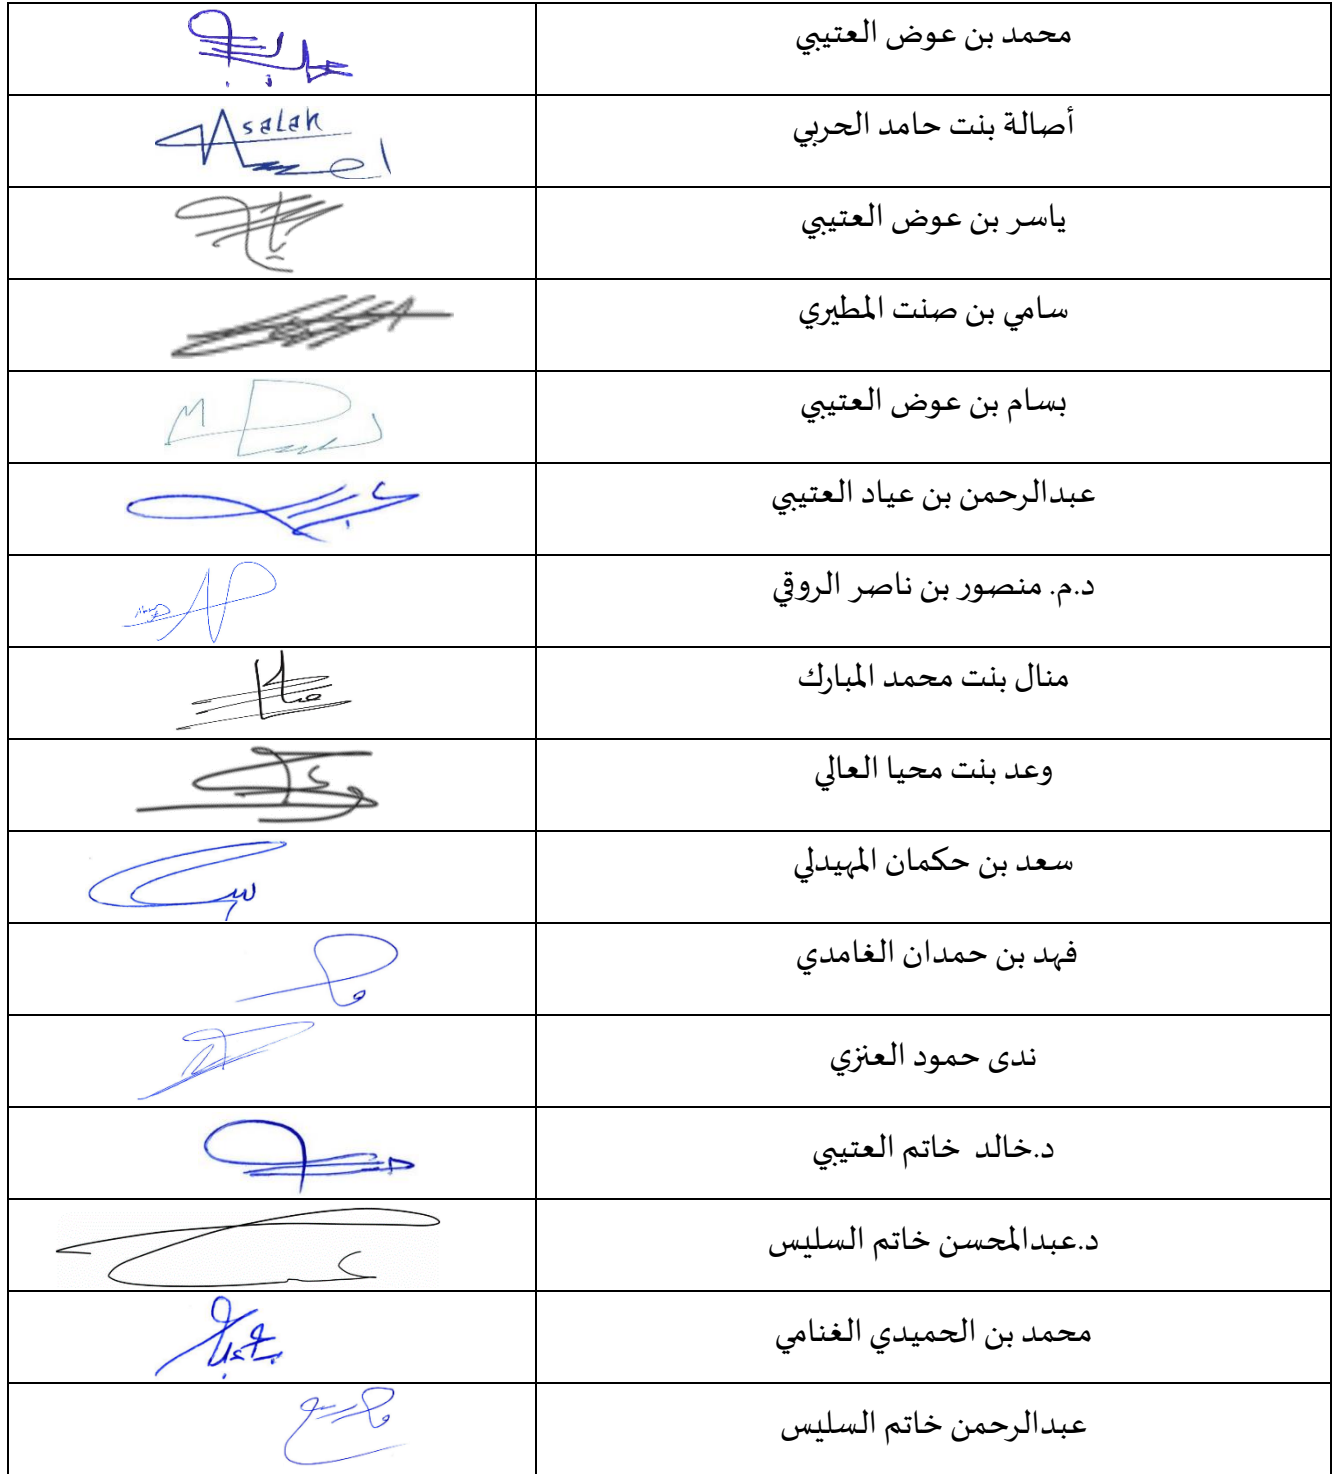 محمد بن عوض العتيبي
أصالة بنت حامد الحربي
Asalah
ياسر بن عوض العتيبي
سامي بن صنت المطيري
بسام بن عوض العتيبي
عبدالرحمن بن عياد العتيبي
د.م. منصور بن ناصر الروقي
منال بنت محمد المبارك
وعد بنت محيا العالي
سعد بن حكمان المهيدلي
فهد بن حمدان الغامدي
ندى حمود العنزي
د.خالد خاتم العتيبي
د.عبدالمحسن خاتم السليس
محمد بن الحميدي الغنامي
عبدالرحمن خاتم السليس